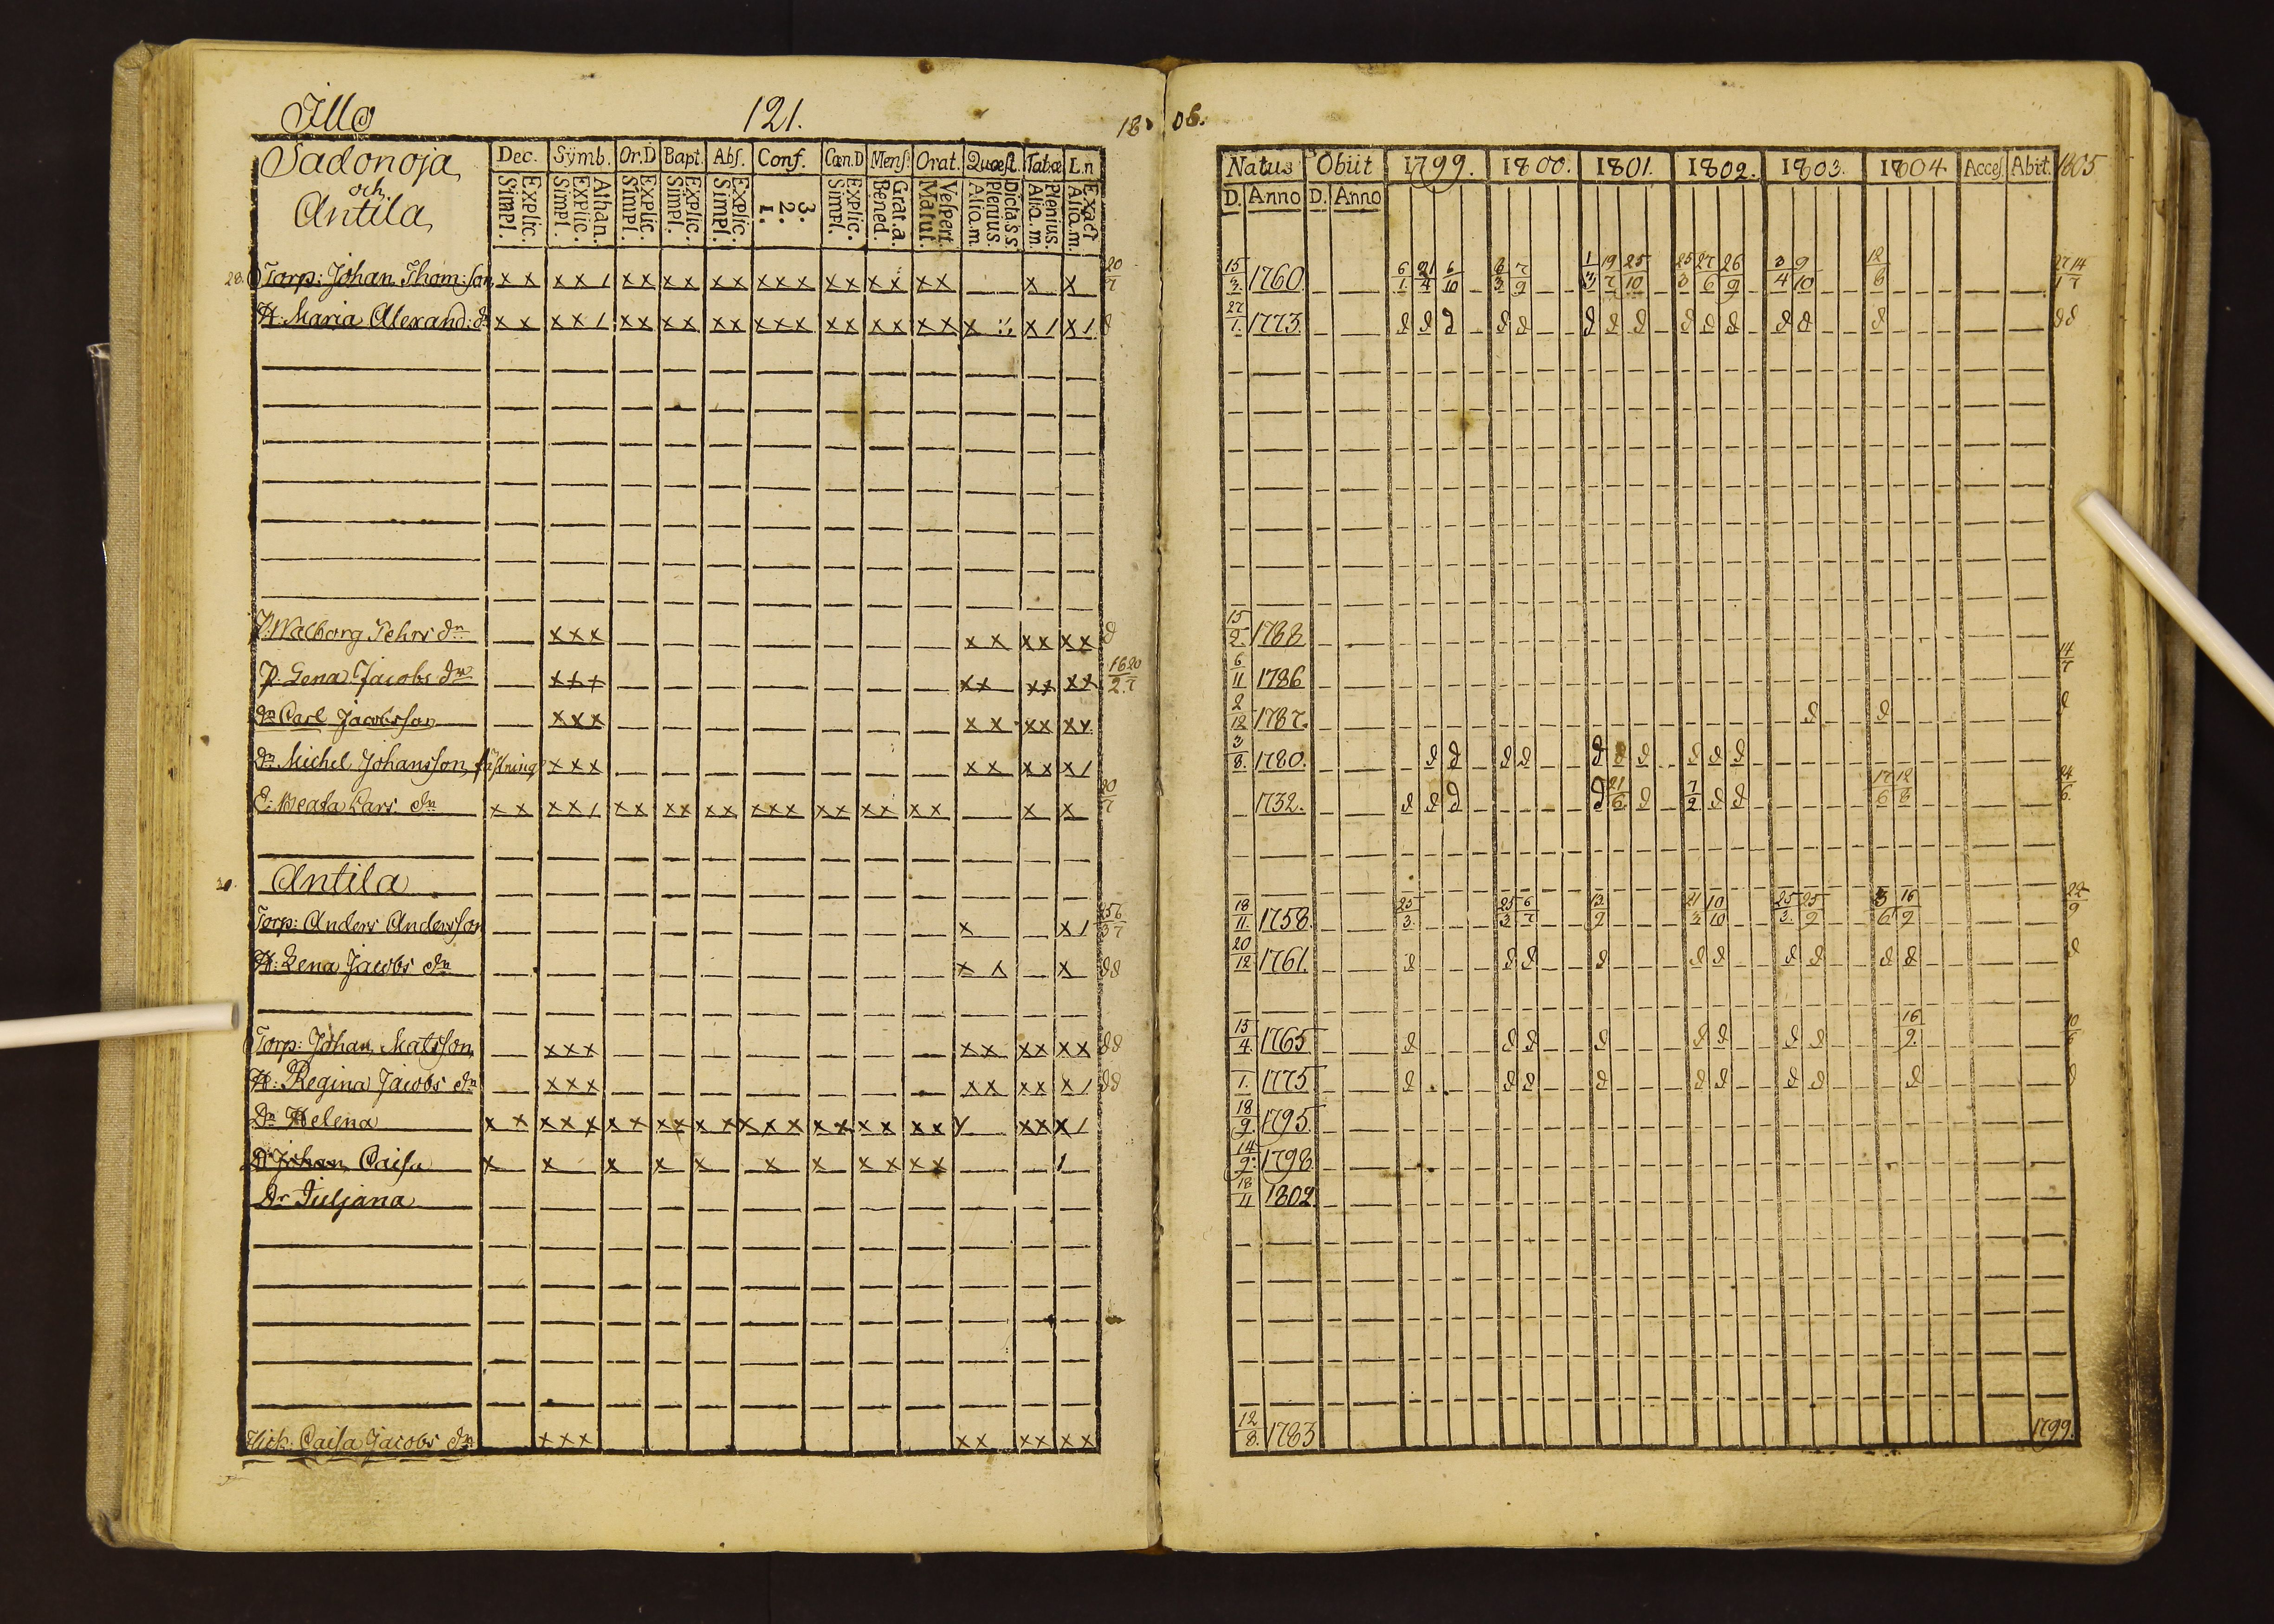 Illo 121. 18 06.
Sadonoja
och
Antila
Dec. Symb. Or.D Bapt. Abs. Conf. Cœn.D Mens. Orat. Quæst. Tabæ L.n
Simpl. Explic. Simpl. Explic. Athan. Simpl. Explic. Simpl. Explic. Simpl. Explic. 1. 2. 3. Simpl. Explic. Bened. Grat.a. Matut. Vespert. Alio.m. Plenius. Dicta.s.s. Alio.m. Plenius. Alio.m. Exact
Natus Obiit 1799. 1800. 1801. 1802. 1803. 1804 Acces. Abit. 1805
D. Anno D. Anno
28 Torp: Johan Thom:son x x x x / x x x x x x x x x x x x x x x x x x 20/7 15/3 1760. 6/1 21/4 6/10 7/9 1/3 19/7 25/10 25/3 27/6 26/9 3/4 9/10 27/1 14/7
H: Maria Alexand: dr x x x x / x x x x x x x x x x x x x x x x x x / x / d 27/1. 1773. d d d d d d d d d d d d d d d d
P. Walborg Pehrs dr x x x x x x x x x d 15/2. 1788
P. Lena Jacobs dr x x x x x x x x x 16/2. 20/7 6/11 1786 14/7
dr Carl Jacobsson x x x x x x x x x 2/12 1787. d d d
dr Michel Johansson x x x x x x x x / 3/8. 1780. d d d d d d d d d d
E: Beata Lars dr x x x x / x x x x x x x x x x x x x x x x x 20/7 1732. d d d d 21/6 d 7/2 d d 17/6 24/6.
Antila
Torp: Anders Andersson x x / 25/3 6/7 18/11. 1758. 25/3. 25/3 6/7 13/9 21/3 10/10 25/3. 25/9 3/6 16/9 22/9
H: Lena Jacobs dr x x x d d 20/12 1761. d d d d d d d d d d d
Torp: Johan Matsson x x x x x x x x x d d 15/4. 1765 d d d d d d d d 16/9. 10/6
H: Regina Jacobs dr x x x x x x x x / d d 1. 1775 d d d d d d d d d d
Dr Helena x x x x x x x x x x x x x x x x x x x x x x x / 18/9. 1795
Dr Johan Caisa x x x x x x x x x x x / 14/9. 1798
Dr Juljana 18/11 1802.
Pick: Caisa Jacobs dr x x x x x x x x x 12/8. 1783 1799.